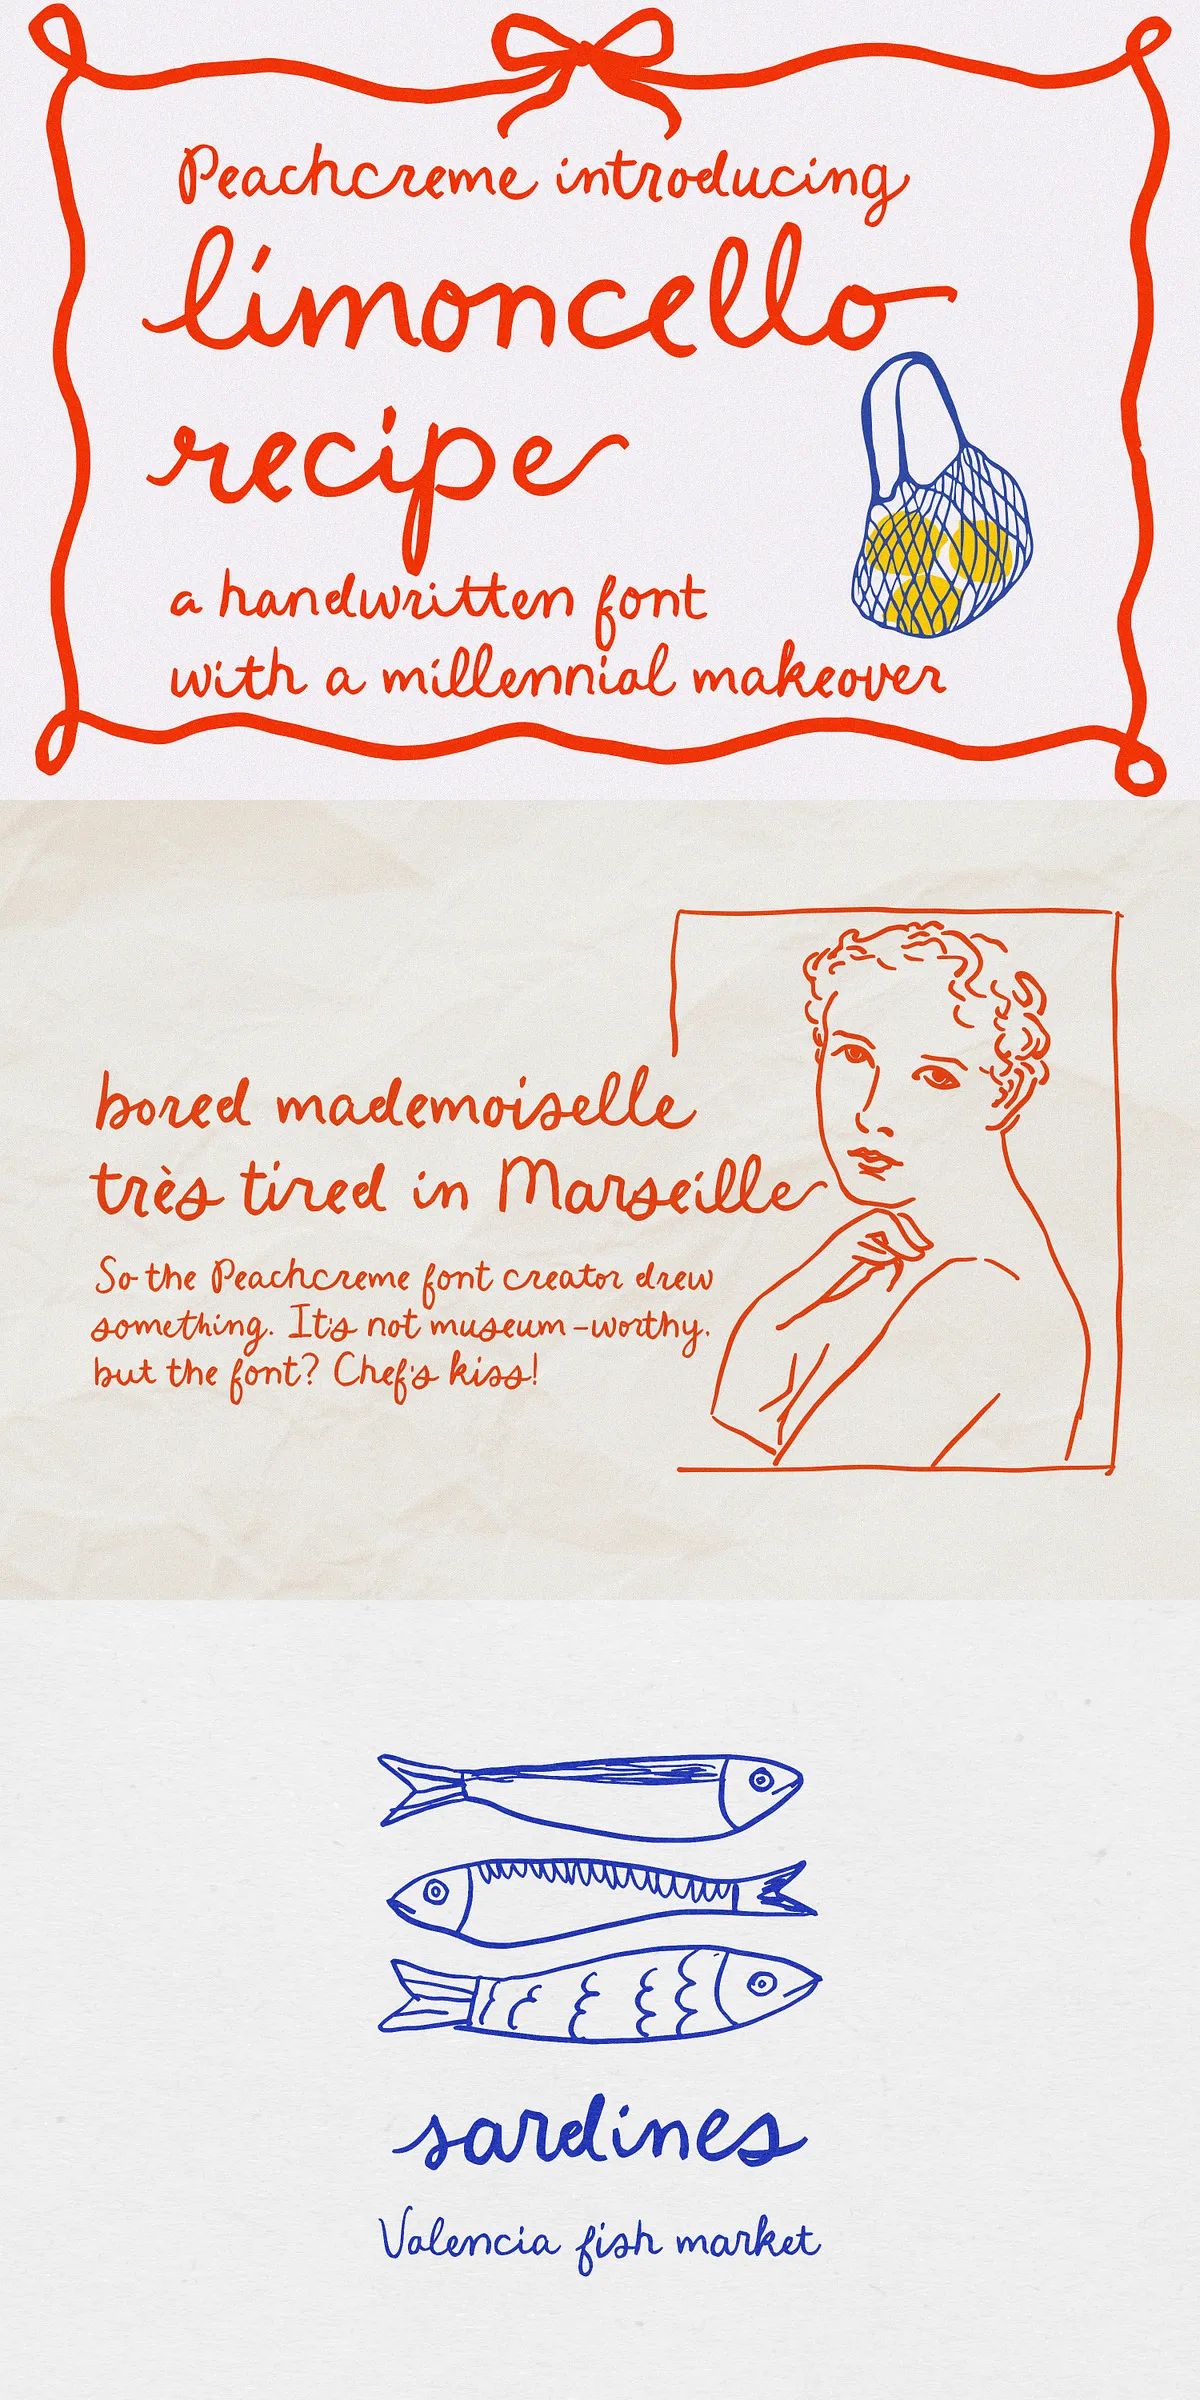 Peachcreme introducing
limoncello
recipe
a handwritten font
with a millennial makeover
bored mademoiselle
très tired in Marseille
So the Peachcreme font creator drew
something. It's not museum-worthy.
but the font? Chef's kiss!
sardines
Valencia fish market